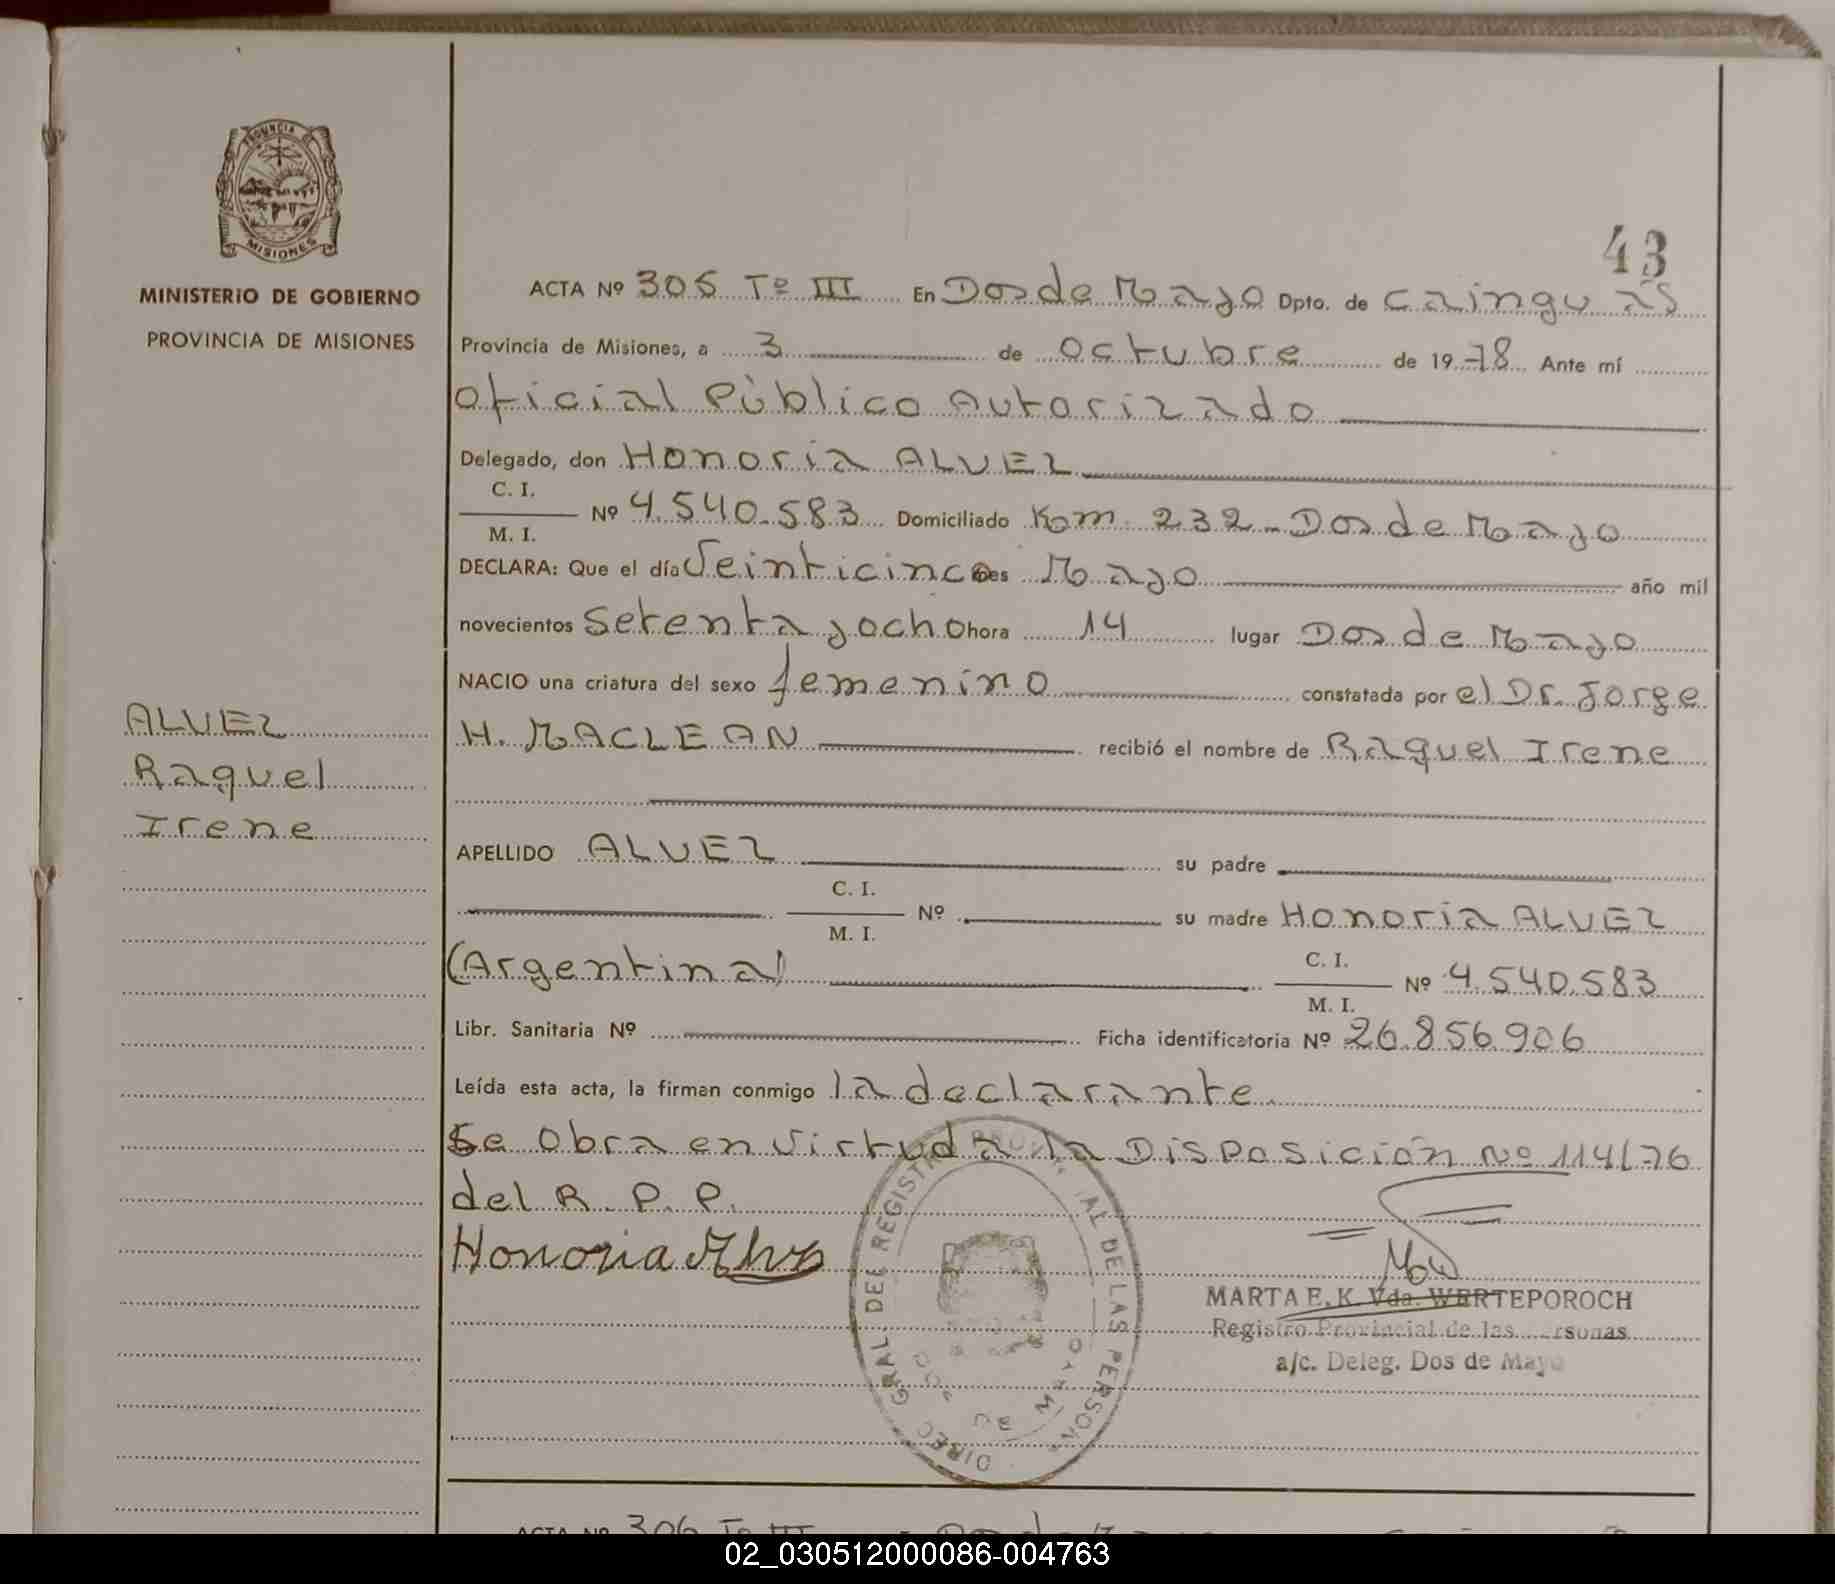 PROVINCIA DE
MISIONES
MINISTERIO DE GOBIERNO
PROVINCIA DE MISIONES
43
ACTA Nº 305 Tº III En Dos de Mayo Dpto. de Cainguás
Provincia de Misiones, a 3 de octubre de 1978 Ante mí
Oficial Público Autorizado
Delegado, don Honoria ALVEZ
C. I.
Nº 4.540.583 Domiciliado Kom. 232 - Dos de Mayo
M. I.
DECLARA: Que el día Veinticinco mes Mayo año mil
novecientos setenta y ocho hora 14 lugar Dos de Mayo
NACIO una criatura del sexo femenino constatada por el Dr. Jorge
H. MACLEAN recibió el nombre de Raquel Irene
ALVEZ
Raquel
Irene
APELLIDO ALVEZ su padre
C. I.
Nº su madre Honoria ALVEZ
M. I.
(Argentina)
C. I.
Nº 4.540.583
M. I.
Libr. Sanitaria Nº Ficha identificatoria Nº 26.856.906
Leída esta acta, la firman conmigo la declarante.
Se obra en virtud a la Disposición Nº 114/76
del R. P. P.
Honoria Alvez
DIREC. GRAL. DEL REGISTRO PROVINCIAL DE LAS PERSONAS
DOS DE MAYO
MARTA E. K. Vda. WERTEPOROCH
Registro Provincial de las Personas
a/c. Deleg. Dos de Mayo
ACTA Nº 306 Tº III
02_030512000086-004763